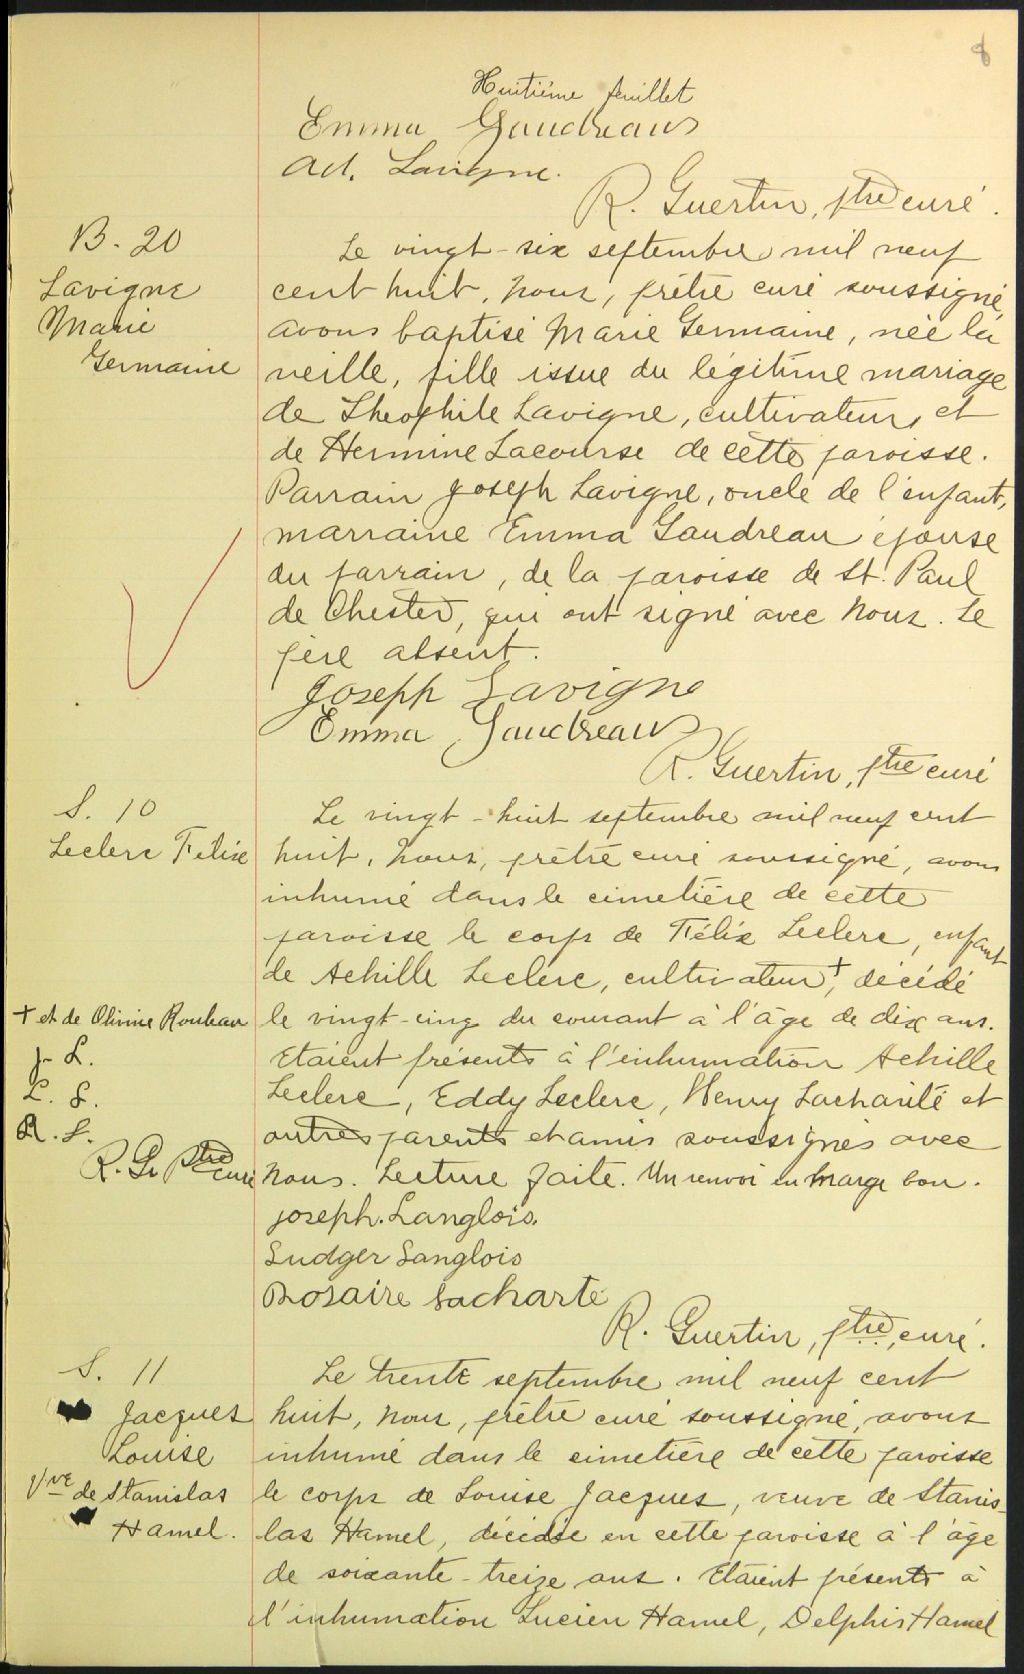 8
Huitième feuillet
Emma Gaudreau
Ad. Lavigne.
R. Guertin, ptre curé.
B. 20
Lavigne
Marie
Germaine
Le vingt-six septembre mil neuf
cent huit, nous, prêtre curé soussigné,
avons baptisé Marie Germaine, née la
veille, fille issue du légitime mariage
de Théophile Lavigne, cultivateur, et
de Hermine Lacourse de cette paroisse.
Parrain Joseph Lavigne, oncle de l'enfant,
marraine Emma Gaudreau épouse
du parrain, de la paroisse de St. Paul
de Chester, qui ont signé avec nous. Le
père absent.
Joseph Lavigne
Emma Gaudreau
R. Guertin, ptre curé
S. 10
Leclerc Félix
Le vingt-huit septembre mil neuf cent
huit, nous, prêtre curé soussigné, avons
inhumé dans le cimetière de cette
paroisse le corps de Félix Leclerc, enfant
de Achille Leclerc, cultivateur+, décédé
le vingt-cinq du courant à l'âge de dix ans.
Etaient présents à l'inhumation Achille
Leclerc, Eddy Leclerc, Henry Lacharité et
autres parents et amis soussignés avec
nous. Lecture faite. Un renvoi en marge bon.
+ et de Olivine Rouleau
J. L.
L. S.
R. L.
R. G. Ptre curé
joseph. Langlois.
Ludger Langlois
Rosaire Lacharté
R. Guertin, ptre, curé.
S. 11
Jacques
Louise
Vve de Stanislas
Hamel.
Le trente septembre mil neuf cent
huit, nous, prêtre curé soussigné, avons
inhumé dans le cimetière de cette paroisse
le corps de Louise Jacques, veuve de Stanis-
las Hamel, décédée en cette paroisse à l'âge
de soixante-treize ans. Etaient présents à
l'inhumation Lucien Hamel, Delphis Hamel